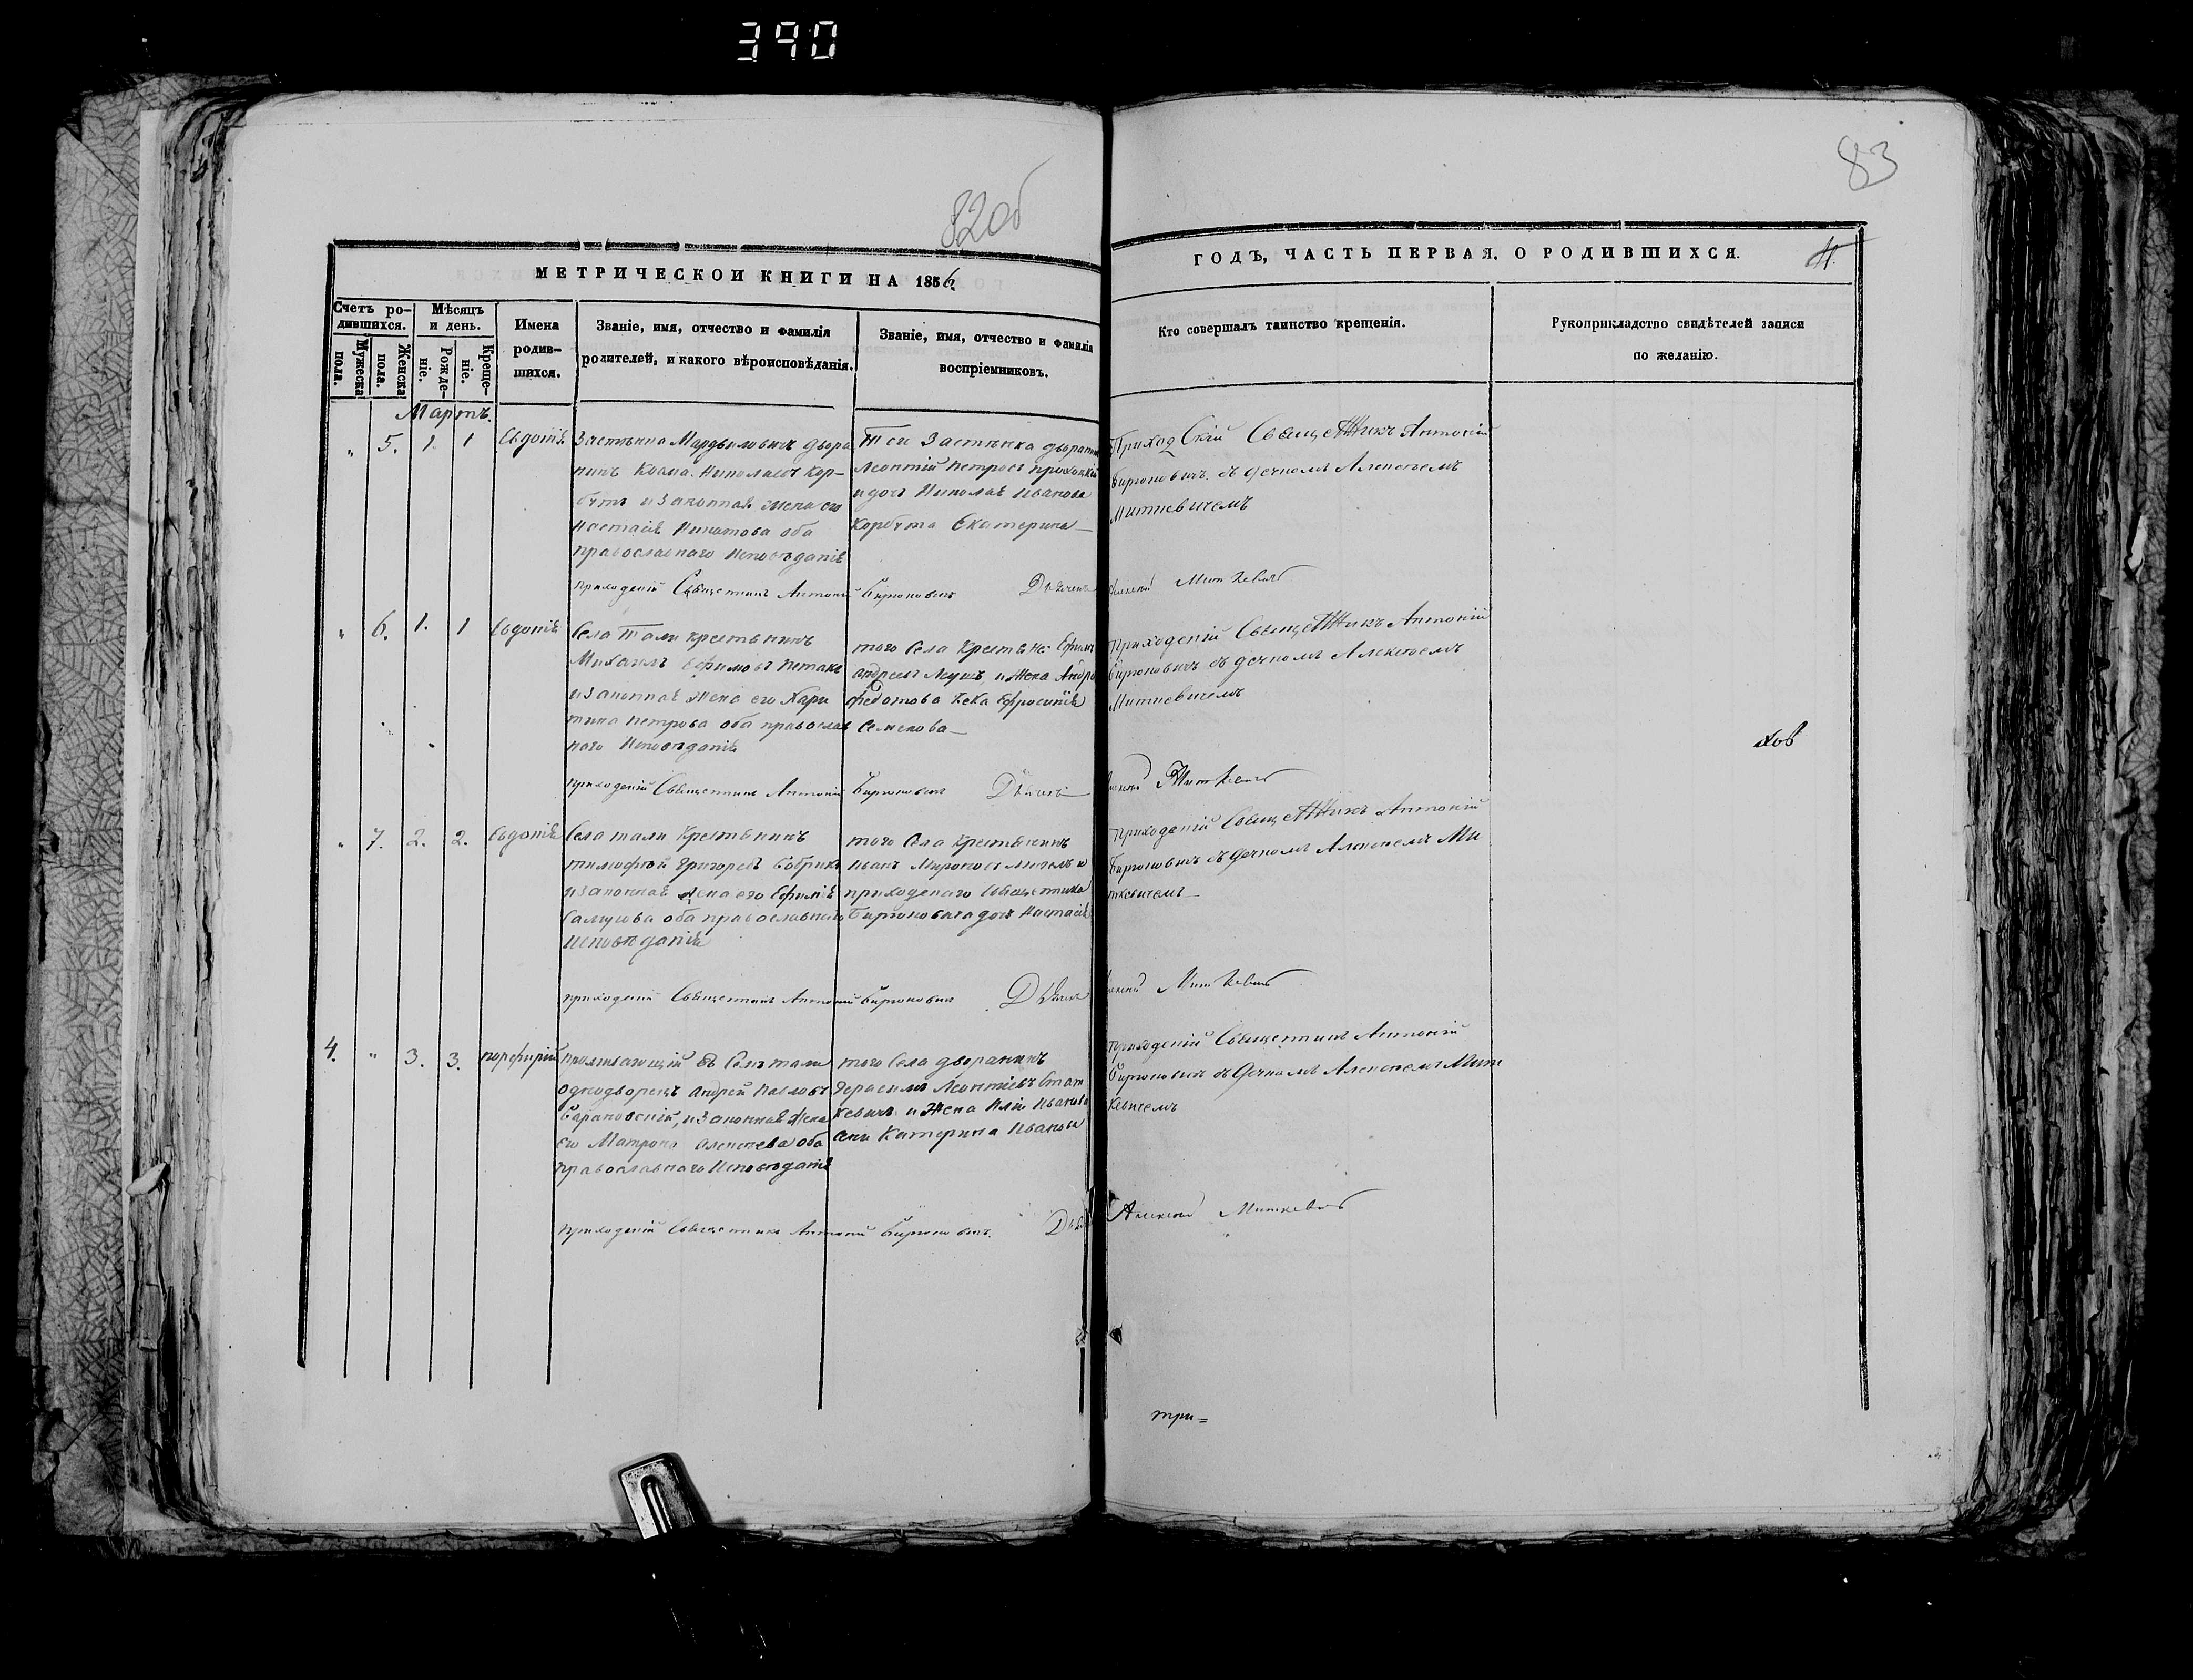 390
82об
83
МЕТРИЧЕСКОЙ КНИГИ НА 1856.
ГОДЪ, ЧАСТЬ ПЕРВАЯ, О РОДИВШИХСЯ.
Счетъ ро-
дившихся.
Мужеска
пола.
Женска
пола.
Мѣсяцъ
и день.
Рожде-
ніе.
Креще-
ніе.
Имена
родив-
шихся.
Званіе, имя, отчество и фамилія
родителей, и какого вѣроисповѣданія.
Званіе, имя, отчество и фамилія
воспріемниковъ.
Кто совершалъ таинство крещенія.
Рукоприкладство свидѣтелей записи
по желанію.
Мартъ.
" 5. 1. 1 Евдокія
Застѣнка дворя
нинъ Косма Николаевъ Кор-
бутъ и законная жена его
Настасія оба
православнаго исповѣданія
Той Застѣнка дворянинъ
Леонтій Петровъ
и дочь Николая Иванова
Корбута Екатерина
Приходскій Священникъ Антоній
Бирюковичъ съ дячкомъ Алексѣемъ
Миткевичемъ
приходскій Священникъ Антоній Бирюковичъ Дьячекъ Алексѣй Миткевичъ
" 6. 1. 1 Евдокія
Села Тали крестьянинъ
Михаилъ Ефимовъ
и законная жена его Хари
тина Петрова оба православ
наго исповѣданія
того Села
Андреевъ и жена
Федотова Ефросинія
Семенова
Приходскій Священникъ Антоній
Бирюковичъ съ дячкомъ Алексѣемъ
Миткевичемъ
приходскій Священникъ Антоній Бирюковичъ Дьячекъ Алексѣй Миткевичъ
" 7. 2. 2. Евдокія
Села Тали Крестьянинъ
Тимофей Григорьевъ Бобрикъ
и законная жена его Ефимія
оба православнаго
исповѣданія
того Села Крестьянинъ
Иванъ Мироновъ
приходскаго Священника
Бирюковича дочь Настасія
Приходскій Священникъ Антоній
Бирюковичъ съ дячкомъ Алексѣемъ Ми
ткевичемъ
приходскій Священникъ Антоній Бирюковичъ Дьячекъ Алексѣй Миткевичъ
4. " 3. 3. Порфирій
проживающій въ Селѣ Тали
однодворецъ Андрей Павловъ
Барановскій, и законная жена
его Матрона Алексѣева оба
православнаго исповѣданія
того Села дворянинъ
Герасимъ Леонтіевъ Стан
кевичъ и жена Иліи Иванова
Катерина Иванова
Приходскій Священникъ Антоній
Бирюковичъ съ дячкомъ Алексѣемъ Мит
кевичемъ
приходскій Священникъ Антоній Бирюковичъ. Алексѣй Миткевичъ
три=